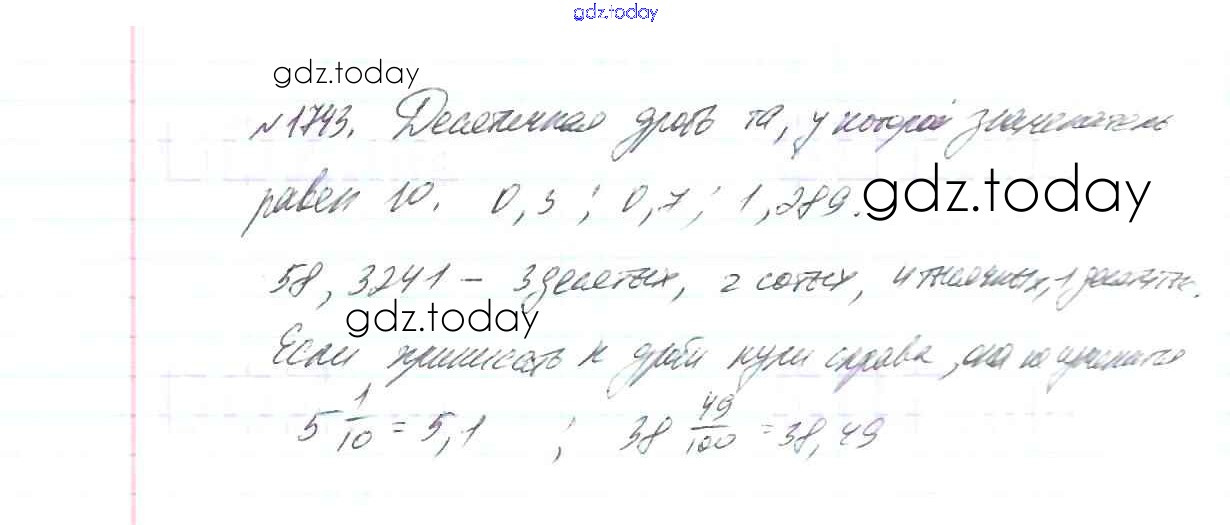 gdz.today
gdz.today
№1743. Десятичная дробь та, у которой знаменатель
равен 10. 0,3 ; 0,7 ; 1,289.
gdz.today
58,3241 – 3 десятых, 2 сотых, 4 тысячных, 1 десятит.
gdz.today
Если приписать к дроби нули справа, она не изменится
5 1/10 = 5,1 ; 38 49/100 = 38,49